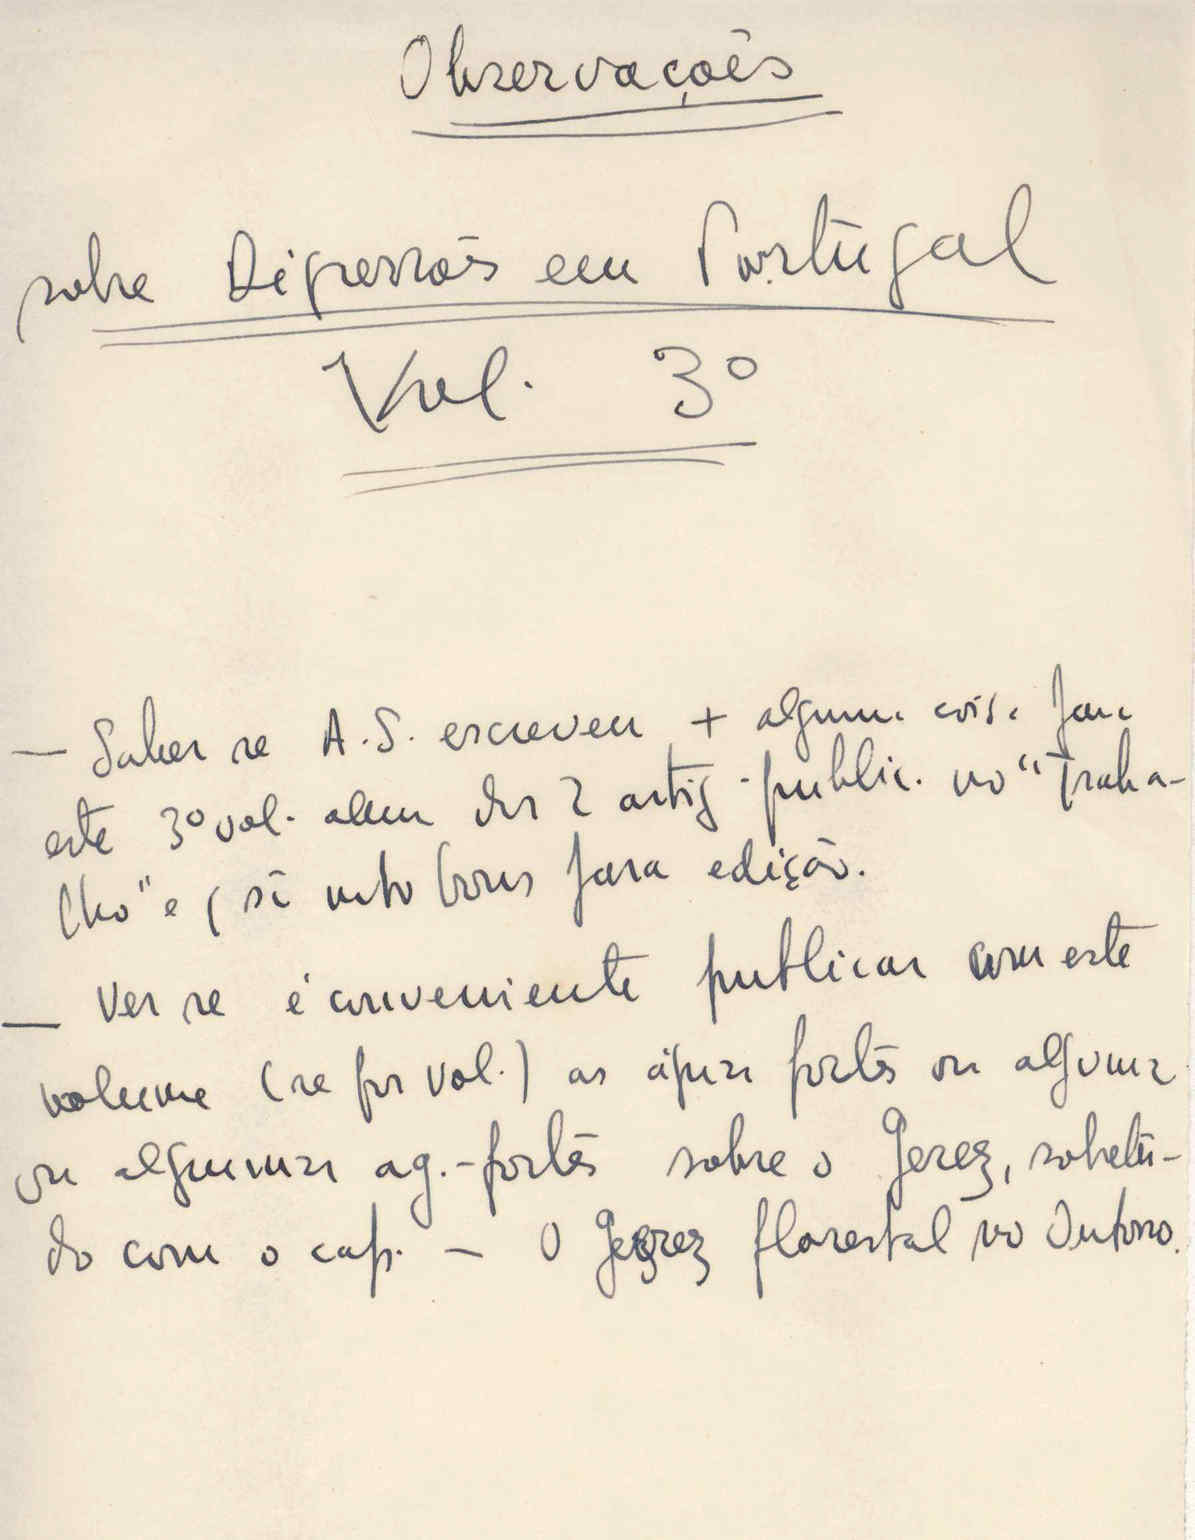 Observações
sobre Digressões em Portugal
Vol. 3º
— Saber se A.S. escreveu + alguma coisa para
este 3º vol. alem dos 2 artig. public. no "Traba-
lho" e (si mto bons para edição.
— Ver se é conveniente publicar com este
volume (se for vol.) as águas fortes ou alguma
ou algumas ag.-fortes sobre o Gerez, sobretu-
do com o cap. — O Gerez florestal no Outono.